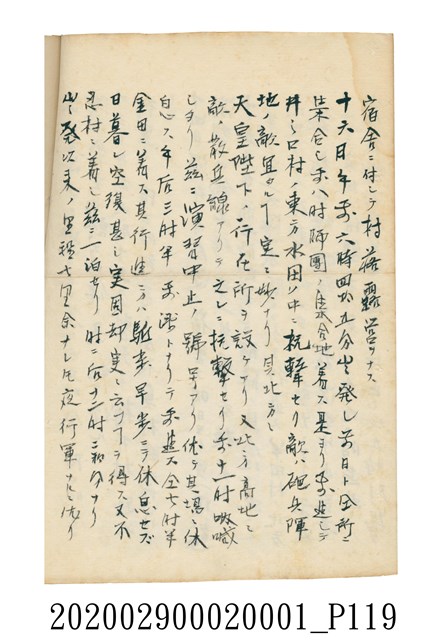 宿舎ニ付シテ村落露営ヲナス
十六日午前六時四五分出発シ前日ト同所ニ
集合シ八時師団ノ集合地着ス是ヨリ前進シテ
井ノ口村ノ東方水田ノ中ニ抗撃セリ敵ハ砲兵陣
地ノ敵宜ク実ニ妙ナリ其北方ニ
天皇陛下ノ行在所ヲ設ケアリ又北方高地ニ
敵ノ散兵線アリテ之レニ抗撃セリ前十一時吶喊
シヨリ茲ニ演習中止ノ号アリ依テ其場ニ休
息ス午后三時半前進ス全七時半
金田ニ着ス其行進ニハ駈歩早歩ニテ休息セズ
日暮レ空腹甚シ実困却実ニ云フヲ得ス又不
忍村ニ着シ茲ニ一泊セリ時ニ后十一時二十分ナリ
出発以来ノ里程十里余ナレ夜行軍ナレハ依リ
202002900020001_P119